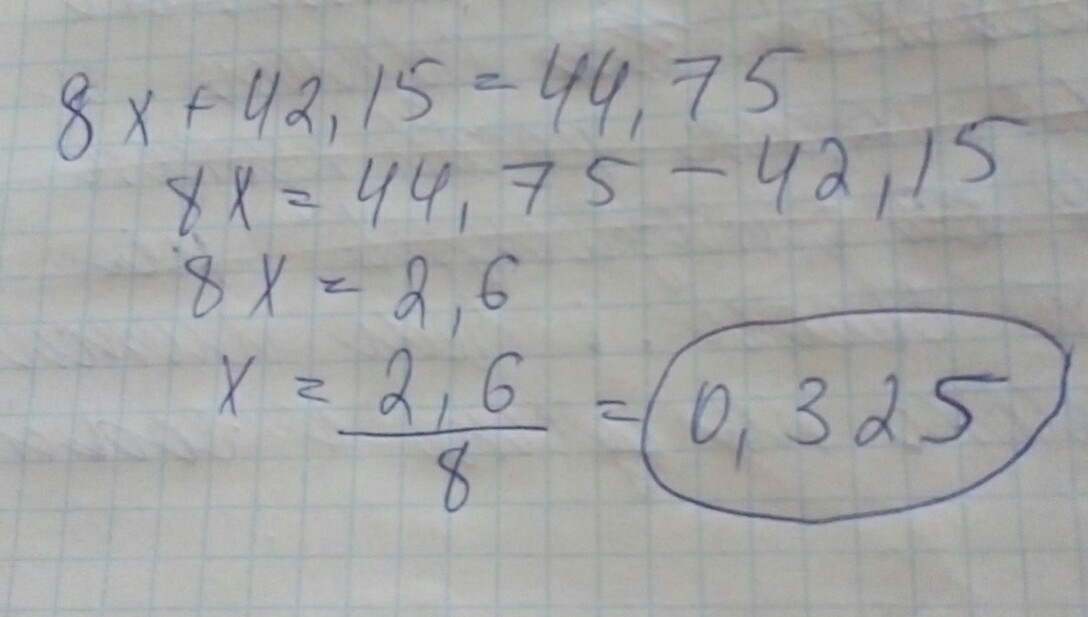 8x + 42,15 = 44,75
8x = 44,75 - 42,15
8x = 2,6
x = 2,6/8 = 0,325